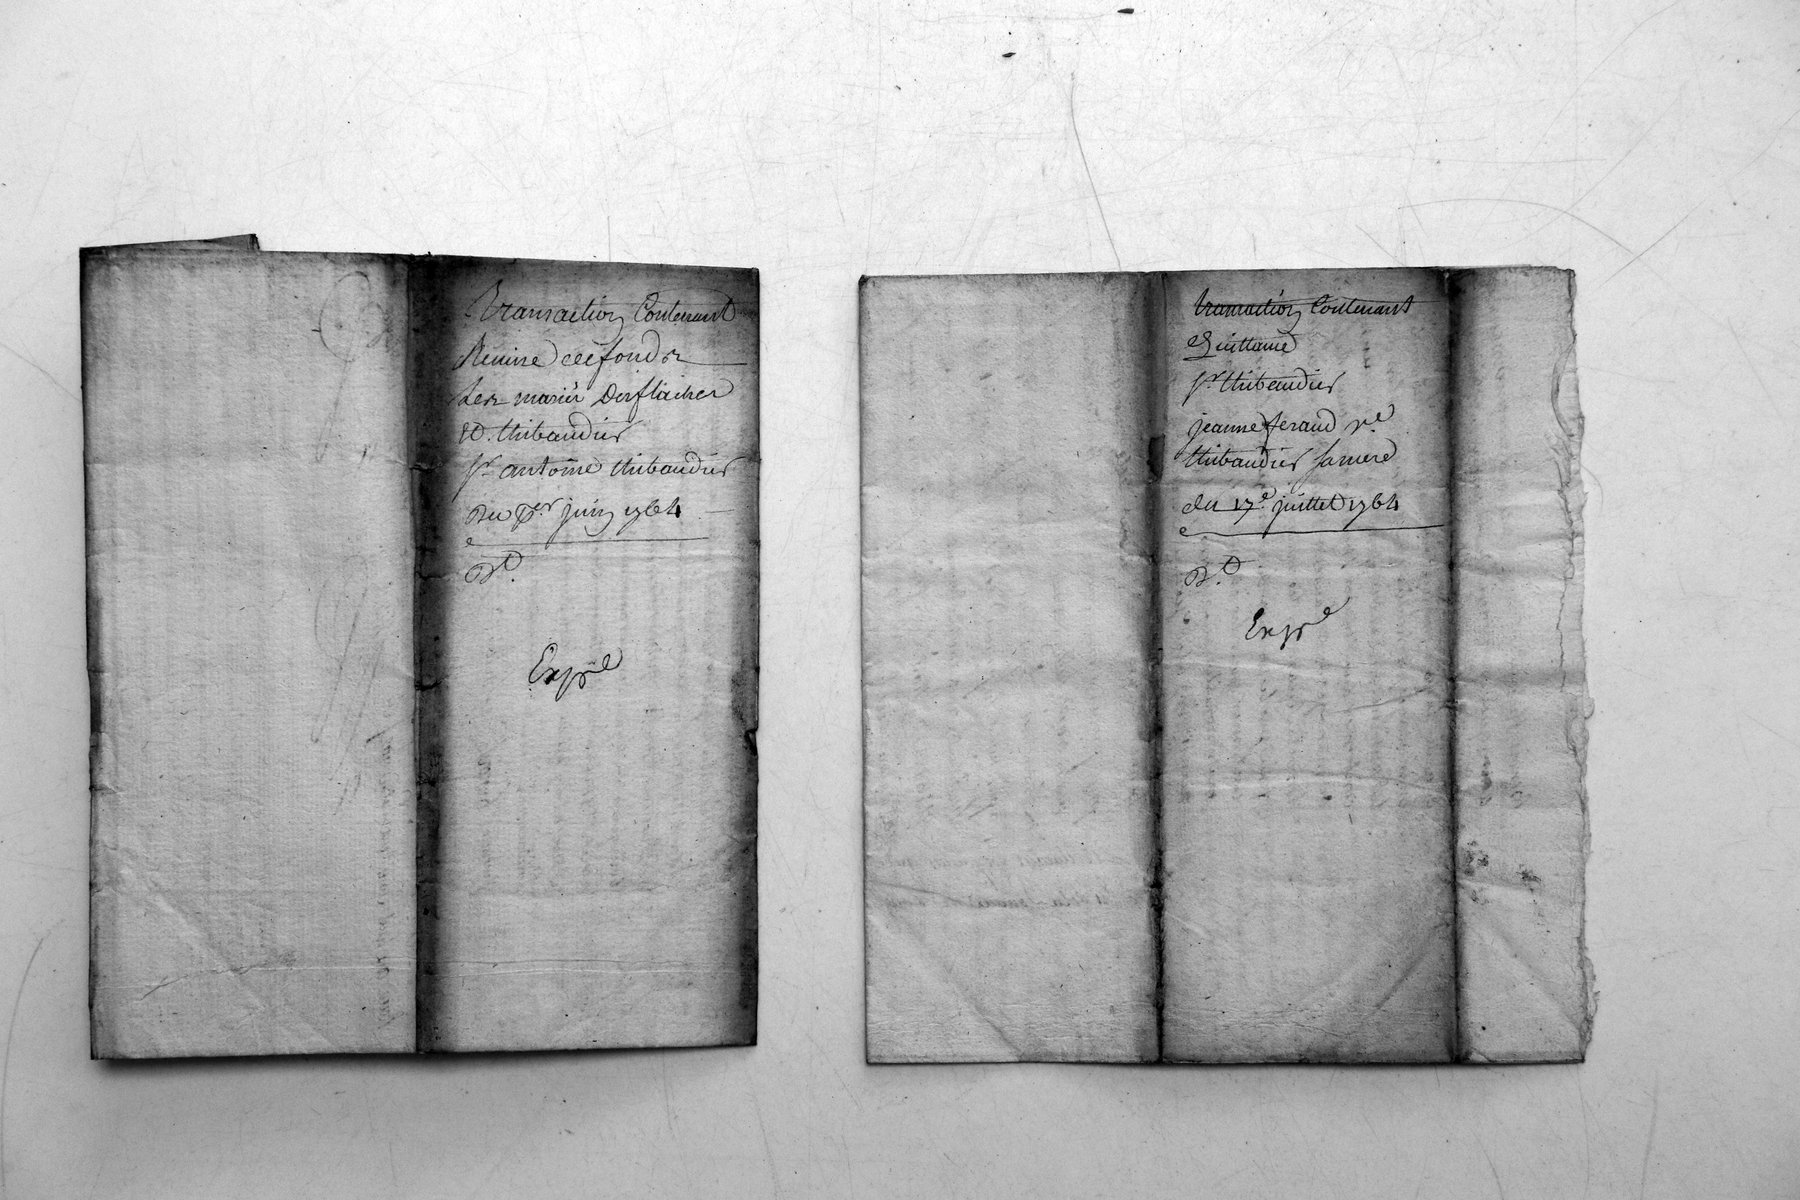 Transaction Contenant
Remise de fonds
Les mariés Desflaches
Et. thibaudier
Sr antoine thibaudier
Du per juin 1764
Bd.
Expée
transaction Contenant
Quittance
Sr thibaudier
jeanne feraud ve.
thibaudier sa mere
du 17e juillet 1764
Bd.
Expée